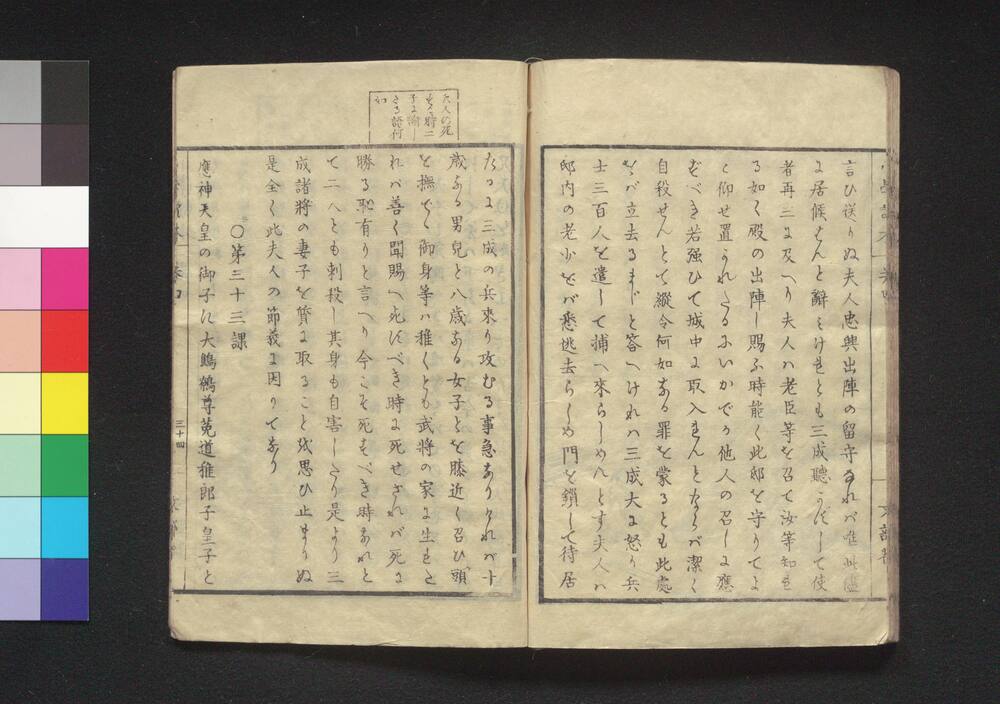 言ひ送りぬ夫人忠興出陣の留守なれバ唯此儘
に居候はんと辭みけれども三成聽かずして使
者再三に及へり夫人ハ老臣等を召て汝等知れ
る如く殿の出陣し賜ふ時能く此邸を守りてよ
と仰せ置かれたるにいかでか他人の召しに應
ずべき若强ひて城中に取入れんとならバ潔く
自殺せんとて縱令何如なる罪を蒙るとも此處
をバ立去るまじと答へけれハ三成大に怒り兵
士三百人を遣して捕へ來らしめんとす夫人ハ
邸内の老少をバ悉逃去らしめ門を鎖して待居
たるに三成の兵來り攻むる事急なりければ十
歳なる男兒と八歳なる女子とを膝近く召ひ頭
を撫でゝ御身等ハ稚くとも武將の家に生れた
れバ善く聞賜へ死すべき時に死せざれバ死に
勝る恥有りと言へり今こそ死すべき時なれと
て二人とも刺殺し其身も自害したり是より三
成諸將の妻子を質に取ることを思ひ止まりぬ
是全く此夫人の節義に因りてなり
〇第三十三課
應神天皇の御子に大鷦鷯尊菟道稚郎子皇子と
夫人の死
する時二
子に諭し
たる語何
如
三十四